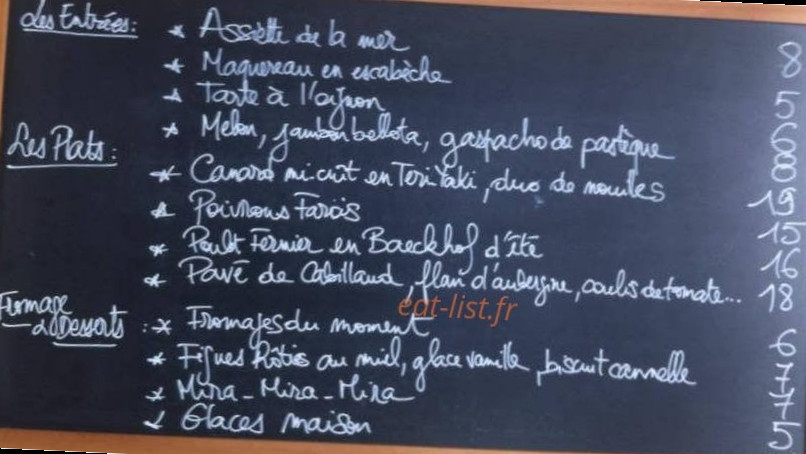 Les Entrées : * Assiette de la mer 8
* Maquereau en escabèche 5
* Tarte à l'oignon 6
* Melon, jambon bellota, gaspacho de pastèque 8
Les Plats : * Canard mi-cuit en TeriYaki, duo de nouilles 19
* Poivrons Farcis 15
* Poulet Fermier en Baeckhof d'été 16
* Pavé de Cabillaud, flan d'aubergine, coulis de tomate... 18
eat-list.fr
Fromage
& Desserts : * Fromages du moment 6
* Figues Rôties au miel, glace vanille, biscuit cannelle 7
* Mira - Mira - Mira 7
* Glaces maison 5